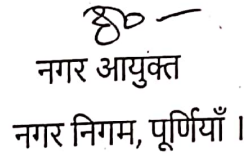 नगर आयुक्त
नगर निगम, पूर्णियाँ ।